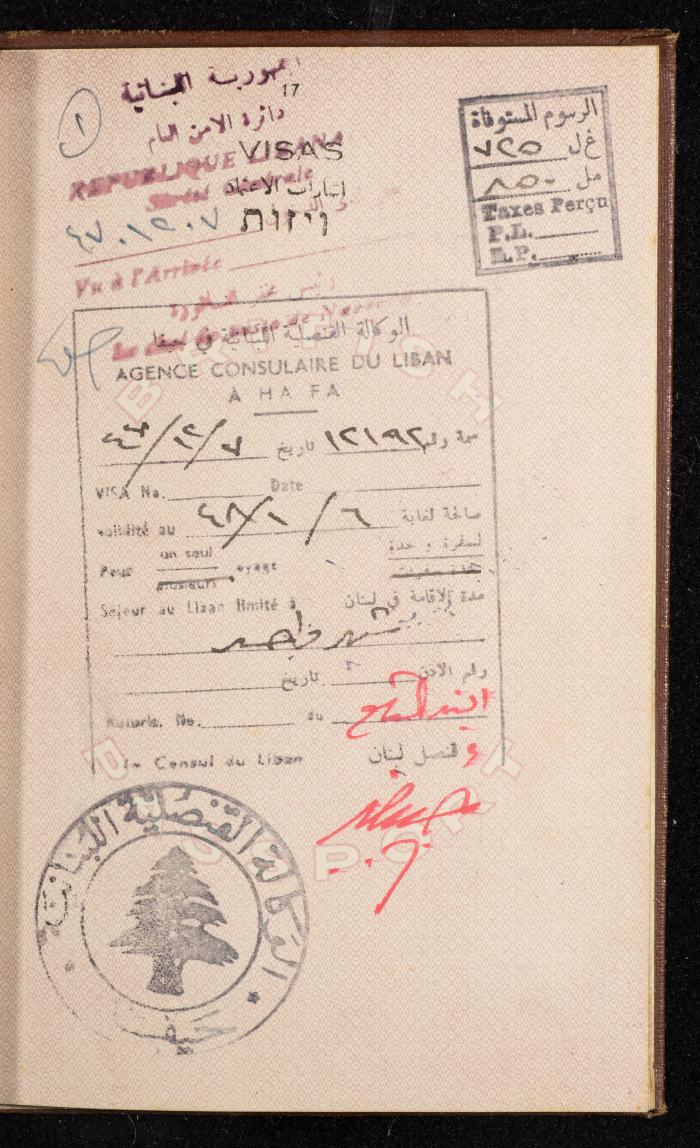 الجمهورية اللبنانية
17
دائرة الامن العام
VISAS
REPUBLIQUE LIBANAISE
Sûreté Générale
ויזות
٤٧.١٢.٠٧
Vu à l'Arrivée
١
الرسوم المستوفاة
غ ل ٧٢٥
مل ٨٥٠
Taxes Perçu
P.L.
L.P.
الوكالة القنصلية اللبنانية في حيفا
AGENCE CONSULAIRE DU LIBAN
À HAIFA
سمة رقم ١٢١٩٢ تاريخ ٧/١٢/٤٧
VISA No. Date
صالحة لغاية ٦/١/٤٨
validité au
لسفرة واحدة
Pour un seul voyage
plusieurs
مدة الاقامة في لبنان
Séjour au Liban limité à
شهر واحد
رقم الاذن تاريخ
Autoris. No. du
قنصل لبنان
Le Consul du Liban
BRITISH
PASSPORT
الوكالة القنصلية اللبنانية
حيفا